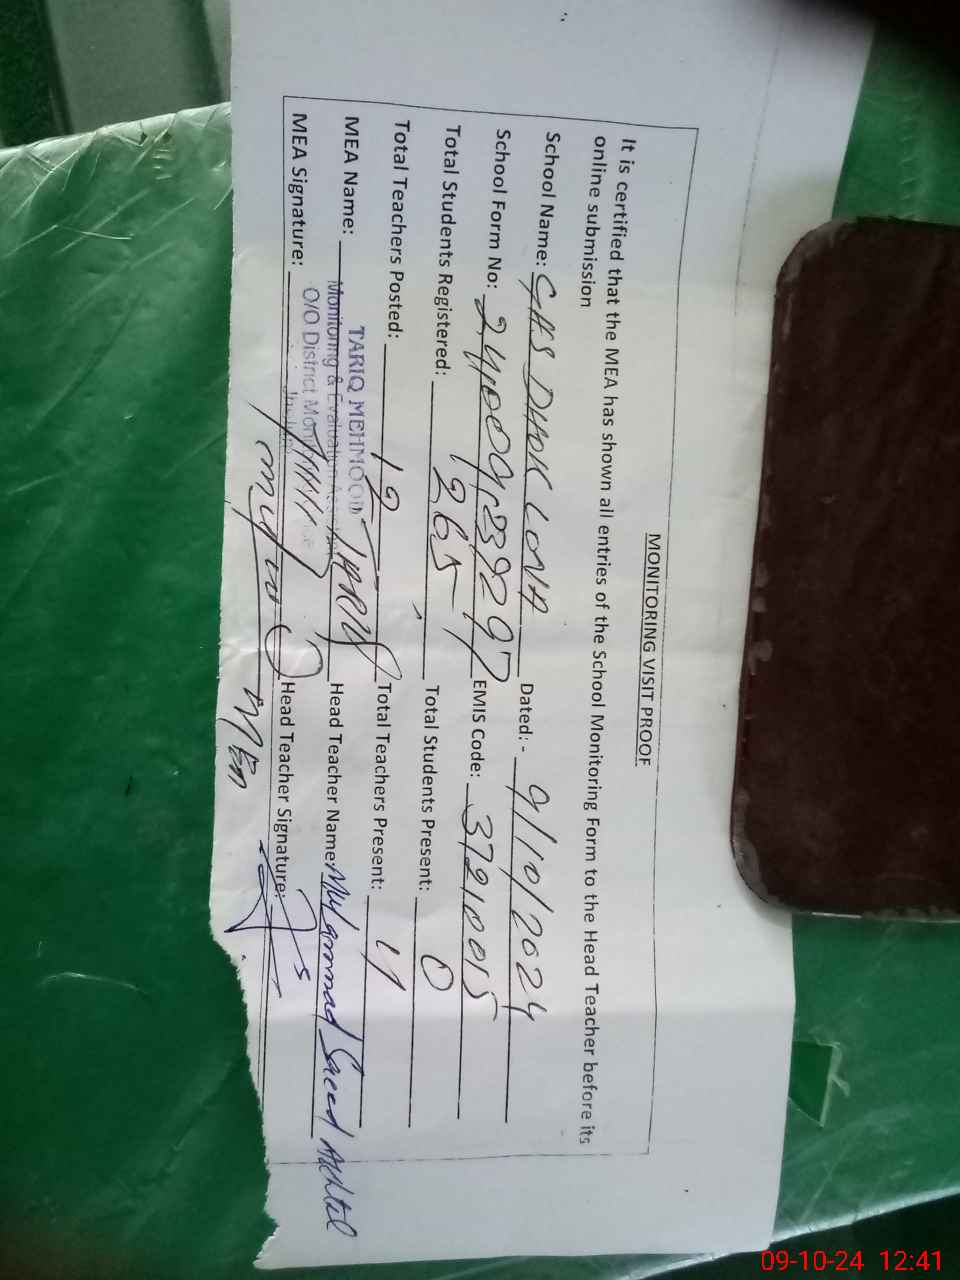 MONITORING VISIT PROOF
It is certified that the MEA has shown all entries of the School Monitoring Form to the Head Teacher before its
online submission
School Name: GHS DHOK LONA Dated:- 9/10/2024
School Form No: EMIS Code: 37210015
Total Students Registered: 265 Total Students Present: 0
Total Teachers Posted: 12 Total Teachers Present: 4
MEA Name: TARIQ Head Teacher Name: Muhammad Saeed Akhtar
TARIQ MEHMOOD
Monitoring & Evaluation
O/O District
MEA Signature: Head Teacher Signature:
MEA
09-10-24 12:41